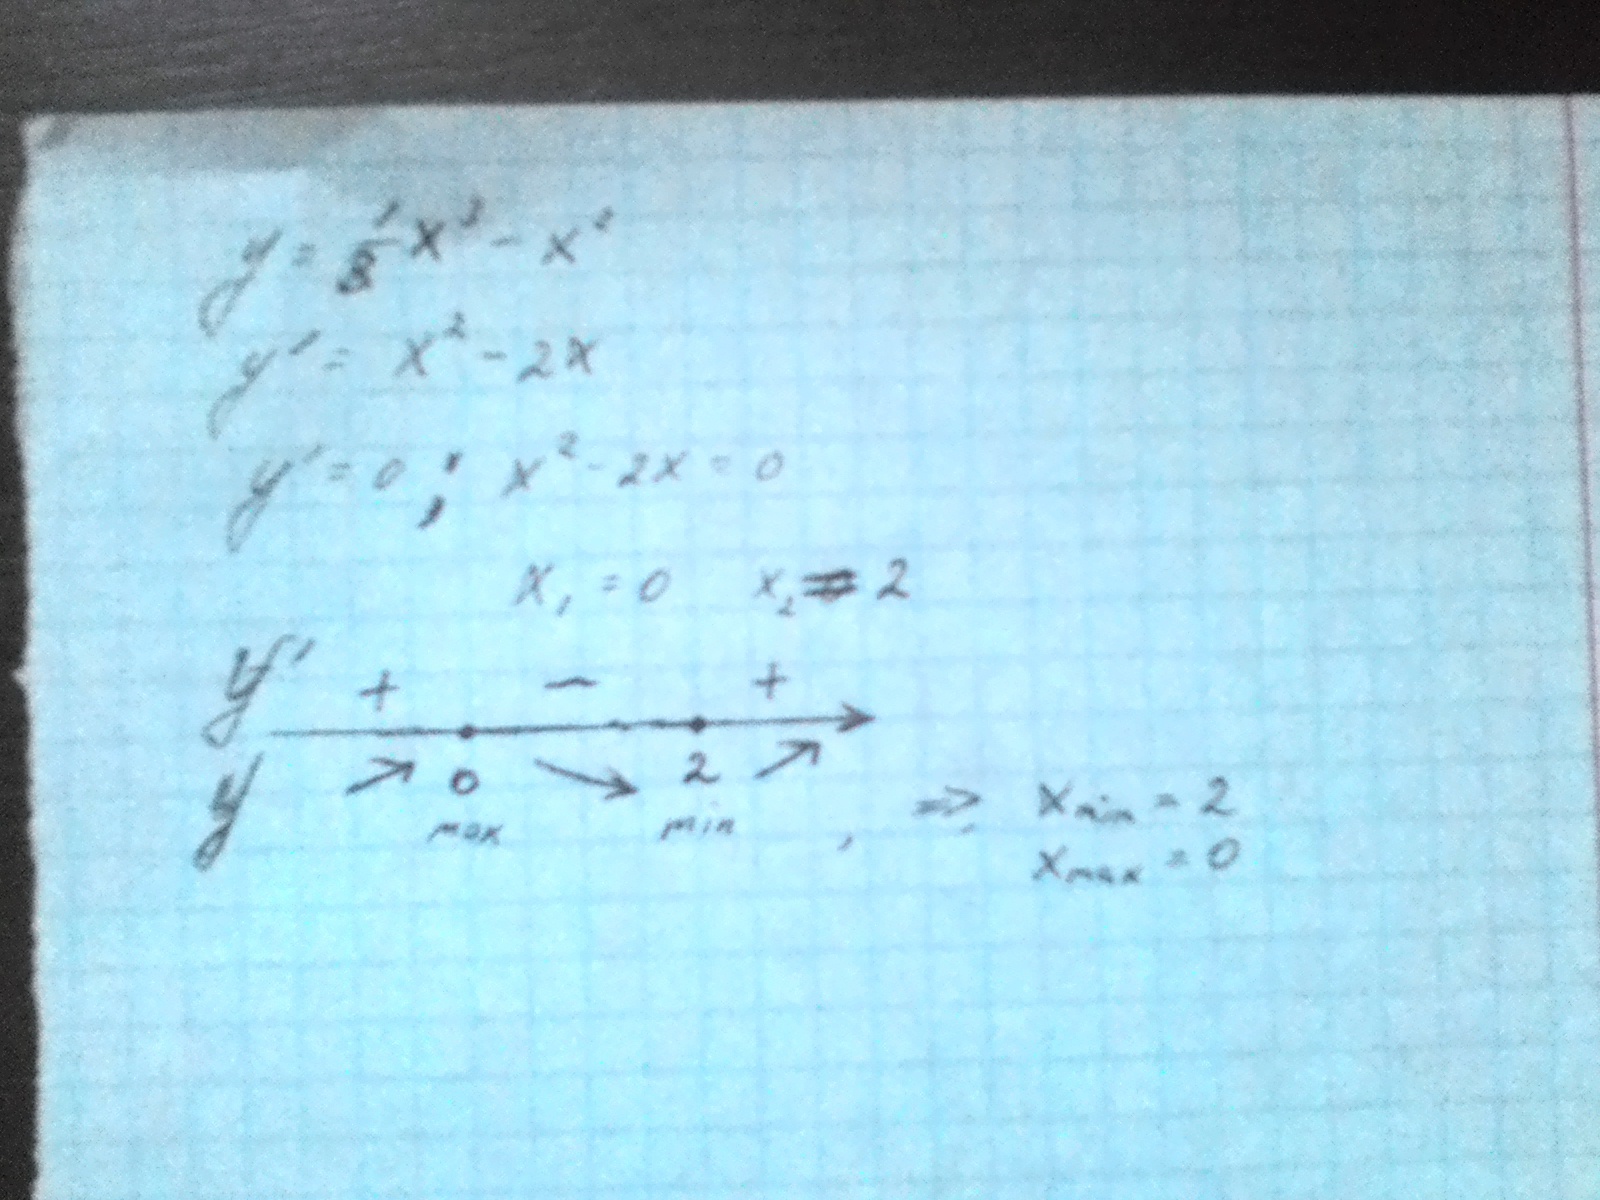 y = 1/3 x³ - x²
y' = x² - 2x
y' = 0 ; x² - 2x = 0
x₁ = 0 x₂ = 2
y' + - +
y 0 2
max min , => x min = 2
x max = 0